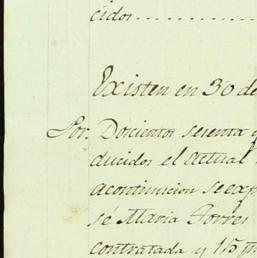 cidos
Existen en 30 de
Por. Dorcientos sesenta
ducidos el actual
acontinucion se exp
sé Maria Torres
contratada y 115